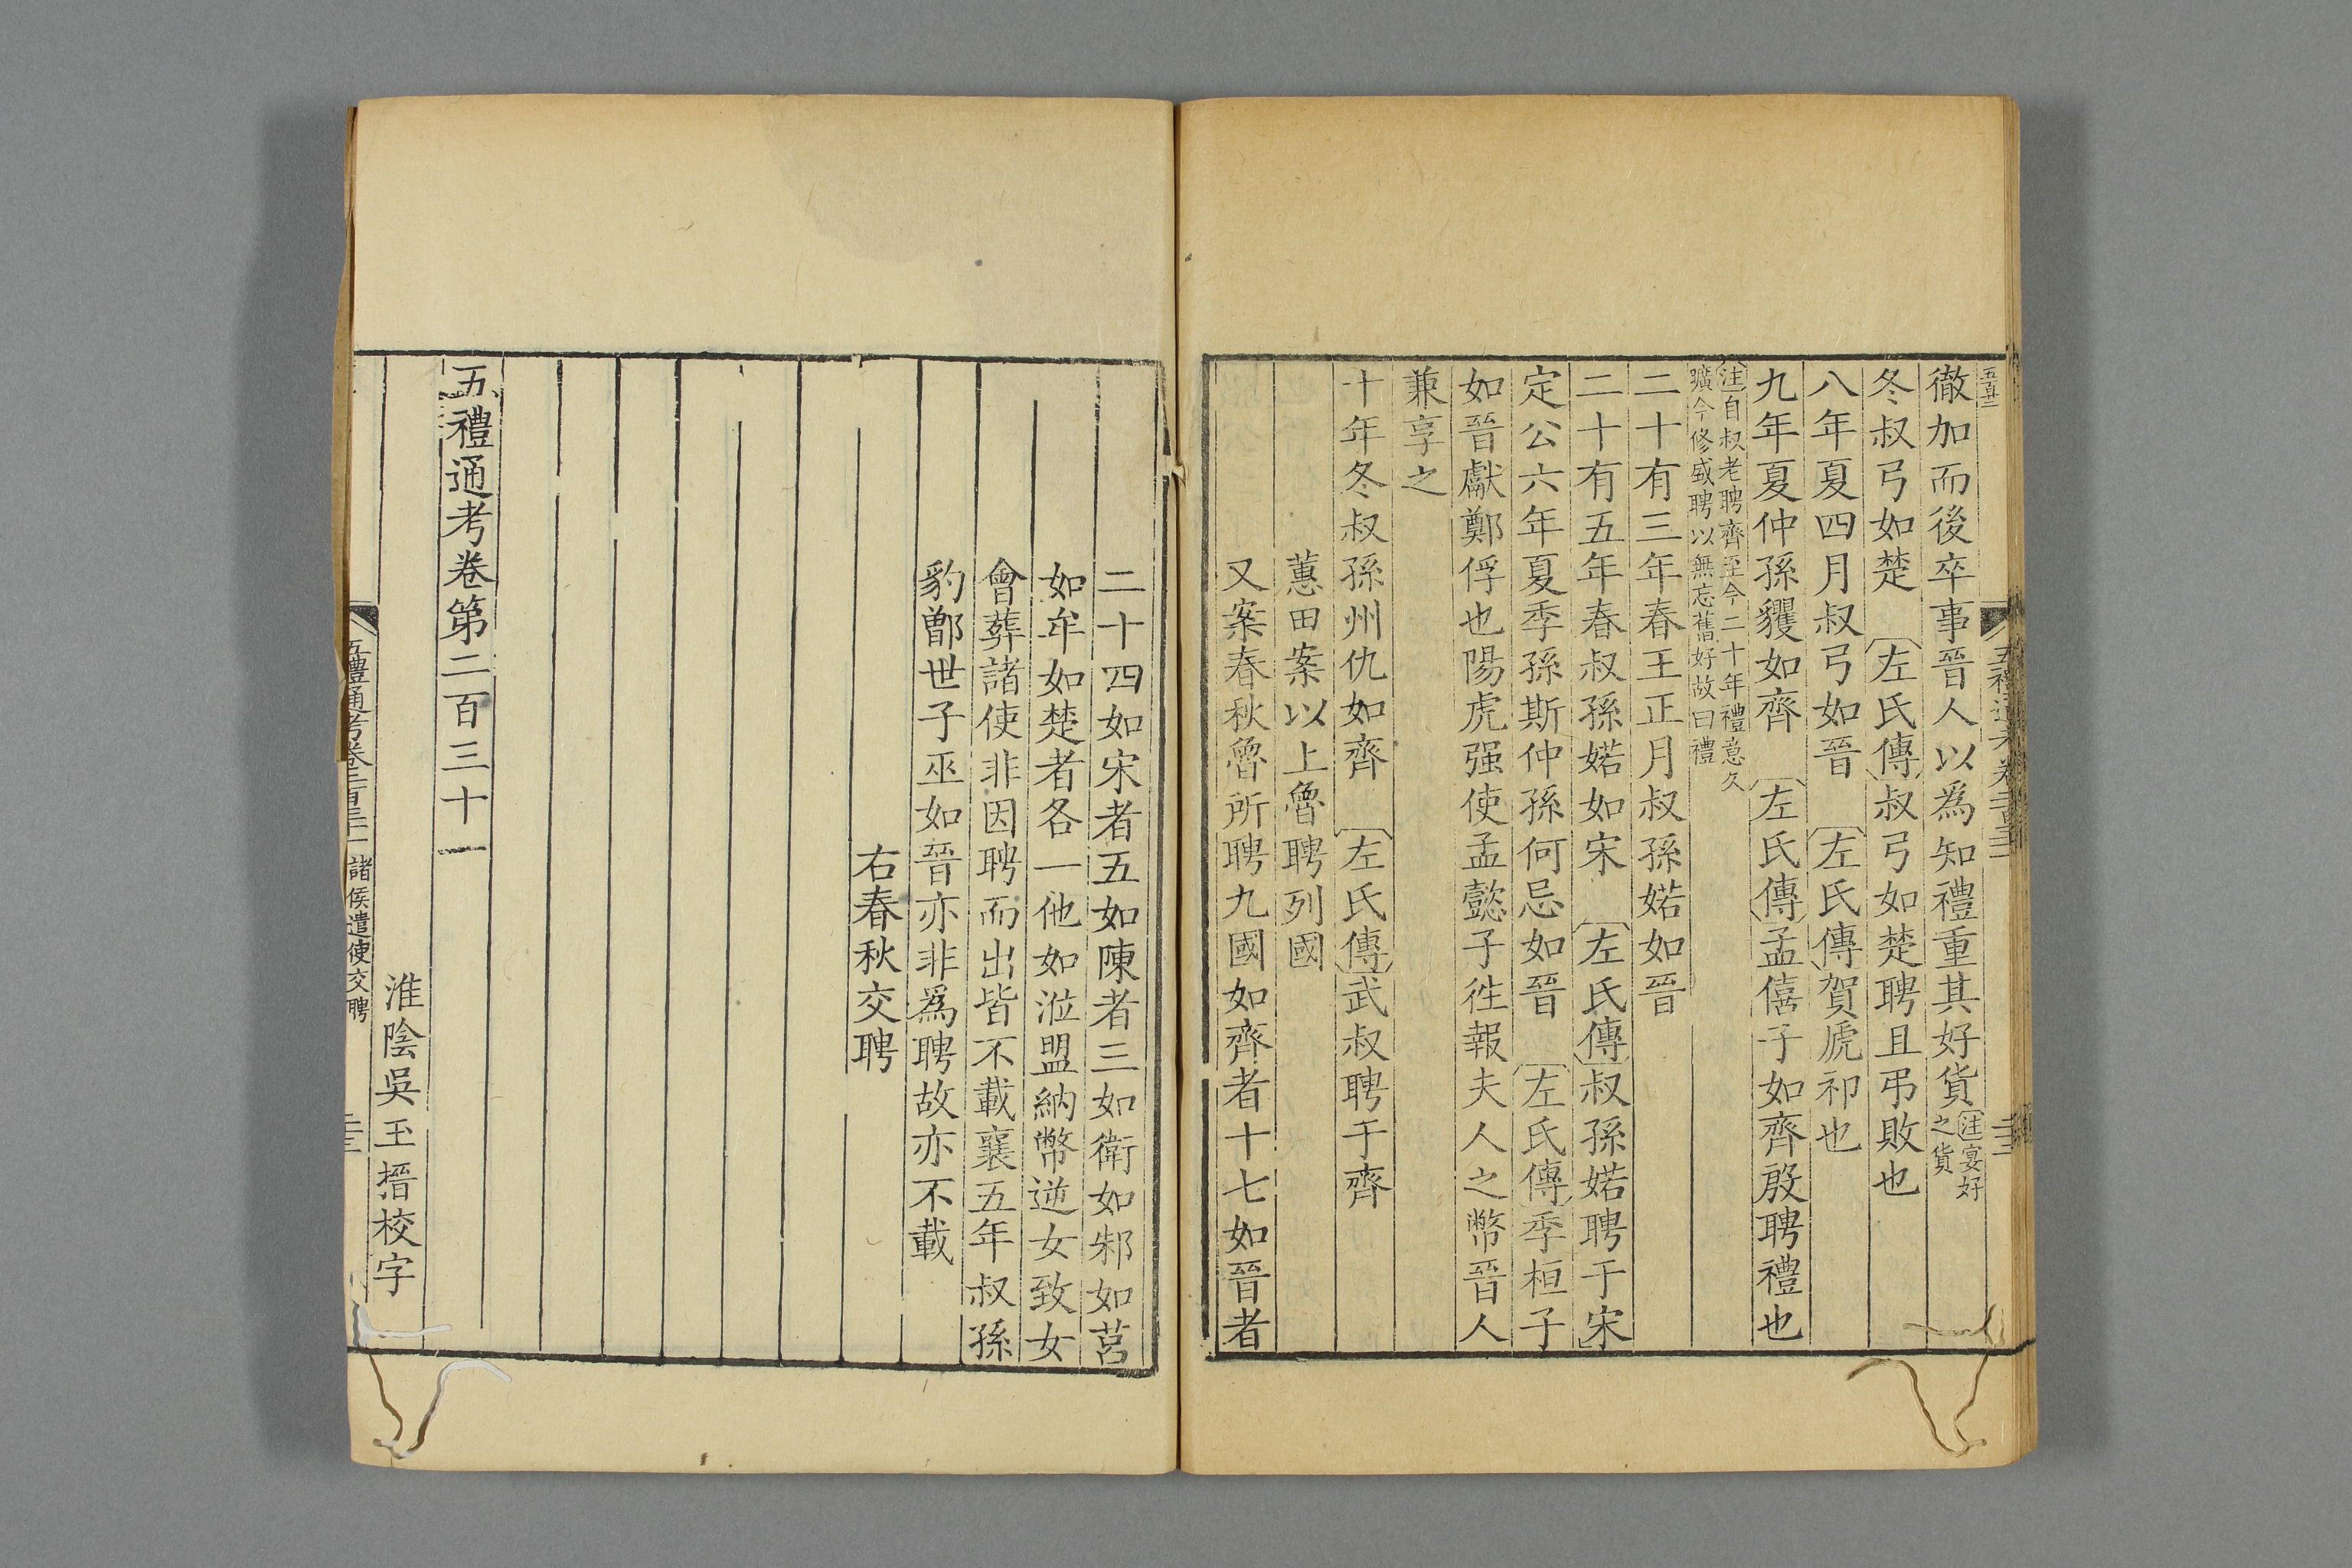 徹加而後卒事晉人以爲知禮重其好貨注宴好之貨
冬叔弓如楚 左氏傳叔弓如楚聘且弔敗也
八年夏四月叔弓如晉 左氏傳賀虒祁也
九年夏仲孫貜如齊 左氏傳孟僖子如齊殷聘禮也
注自叔老聘齊至今二十年禮意久
曠今修盛聘以無忘舊好故曰禮
二十有三年春王正月叔孫婼如晉
二十有五年春叔孫婼如宋 左氏傳叔孫婼聘于宋
定公六年夏季孫斯仲孫何忌如晉 左氏傳季桓子
如晉獻鄭俘也陽虎强使孟懿子徃報夫人之幣晉人
兼享之
十年冬叔孫州仇如齊 左氏傳武叔聘于齊
蕙田案以上魯聘列國
又案春秋魯所聘九國如齊者十七如晉者
二十四如宋者五如陳者三如衛如邾如莒
如牟如楚者各一他如涖盟納幣逆女致女
會葬諸使非因聘而出皆不載襄五年叔孫
豹鄫世子巫如晉亦非爲聘故亦不載
右春秋交聘
五禮通考卷第二百三十一
淮陰吳玉搢校字
五禮通考卷二百三十一 諸侯遣使交聘